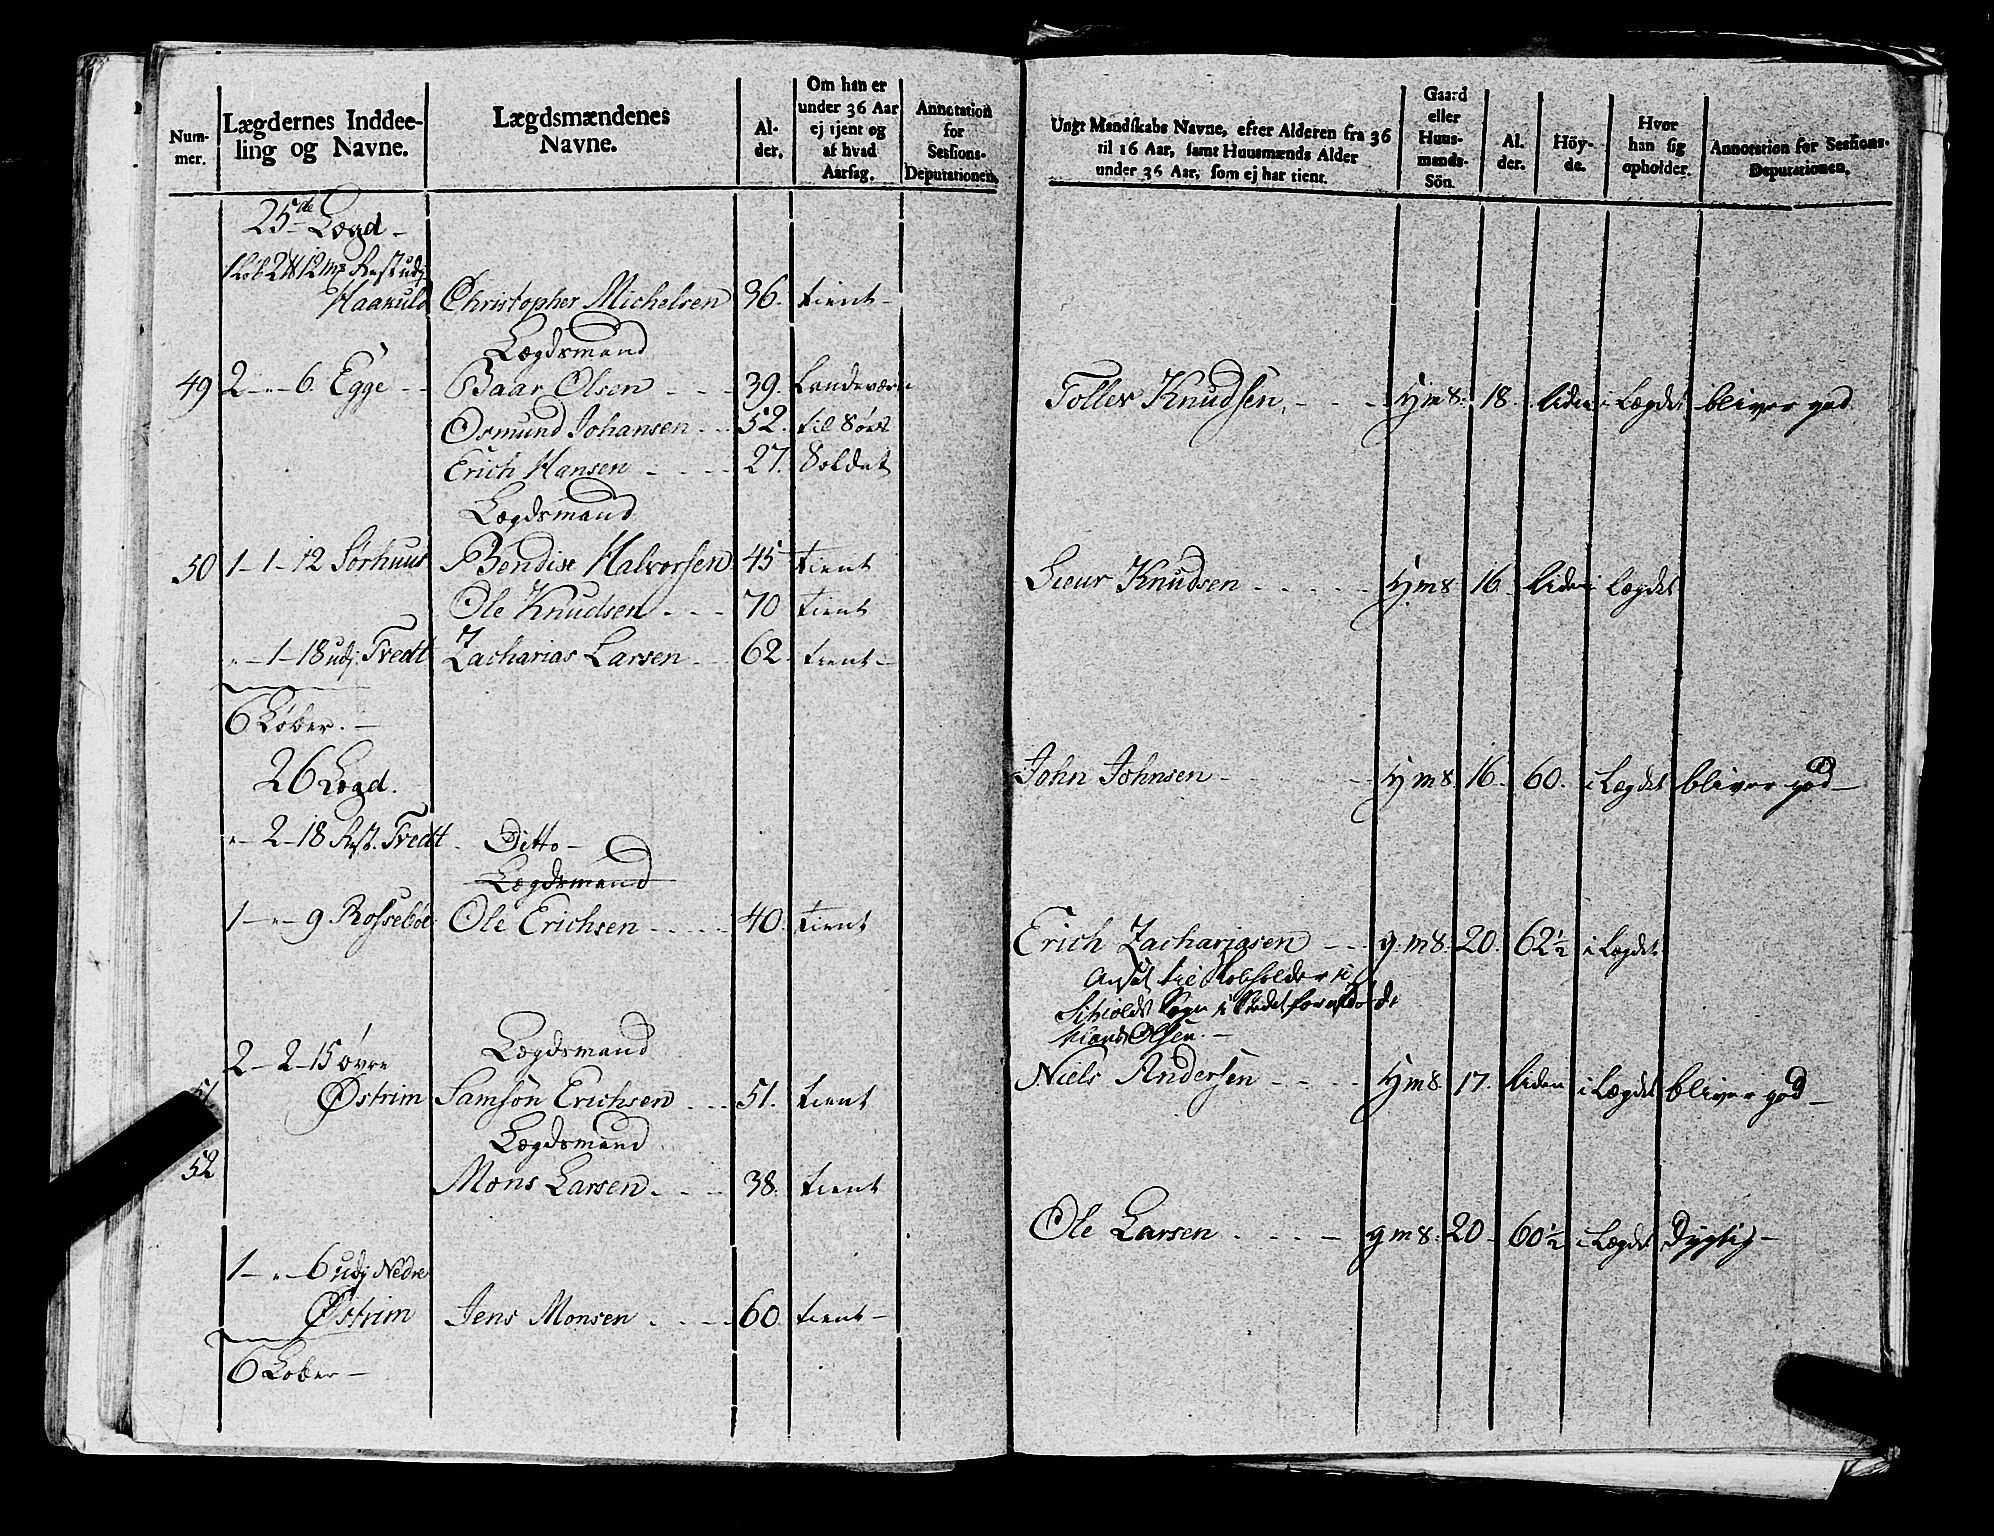 Num-
mer.
Lægdernes Inddee-
ling og Navne.
Lægdsmændenes
Navne.
Al-
der.
Om han er
under 36 Aar
ej tjent og
af hvad
Aarsag.
Annotation
for
Sessions-
Deputationen.
25de Lægd -
Haakuld Christopher Michelsen 36. tient -
Lægdsmand
49 2 - " - 6 Egge - - Baar Olsen - - - 39. Landeværn
Osmund Johansen - - 52. til Søes
Erich Hansen - - - - 27. Soldat
Lægdsmand
50 1 - 1 - 12 Sørhuus Bendix Halvorsen 45 tient
Ole Knudsen - - - 70 tient
" - 1 - 18 udj Tvedt Zacharias Larsen - - 62 tient -
6 Løber. -
26 Lægd.
" - 2 - 18 Rest. Tvedt - Ditto -
Lægdsmand
1 - " - 9 Rossebøe Ole Erichsen - - - - - 40. tient
Lægdsmand
2 - 2 - 15 øvre
51 Østrim Samson Erichsen - - - 51. tient
Lægdsmand
52 Mons Larsen - - - 38. tient
1 - " - 6 udj Nedre
Østrim Jens Monsen - - - - 60 tient -
6 Løber -
Ungt Mandskabs Navne, efter Alderen fra 36
til 16 Aar, samt Huusmænds Alder
under 36 Aar, som ej har tient.
Gaard
eller
Huus-
mands-
Sön.
Al.
der.
Höy-
de.
Hvor
han sig
opholder.
Annotation for Sessions-
Deputationen.
Tollev Knudsen, - - - hjms. 18. liden i Lægdet bliver god
Siur Knudsen - - - - - hjms. 16. liden i Lægdet
John Johnsen - - hjms. 16 - 60. i Lægdet bliver god -
Erich Zachariasen - - - g.ms. 20. 62½ i Lægdet
Niels Andersen - - - - hjms. 17. liden i Lægdet bliver god -
Ole Larsen - - - - gms. 20 - 60½ i Lægdet Dygtig -